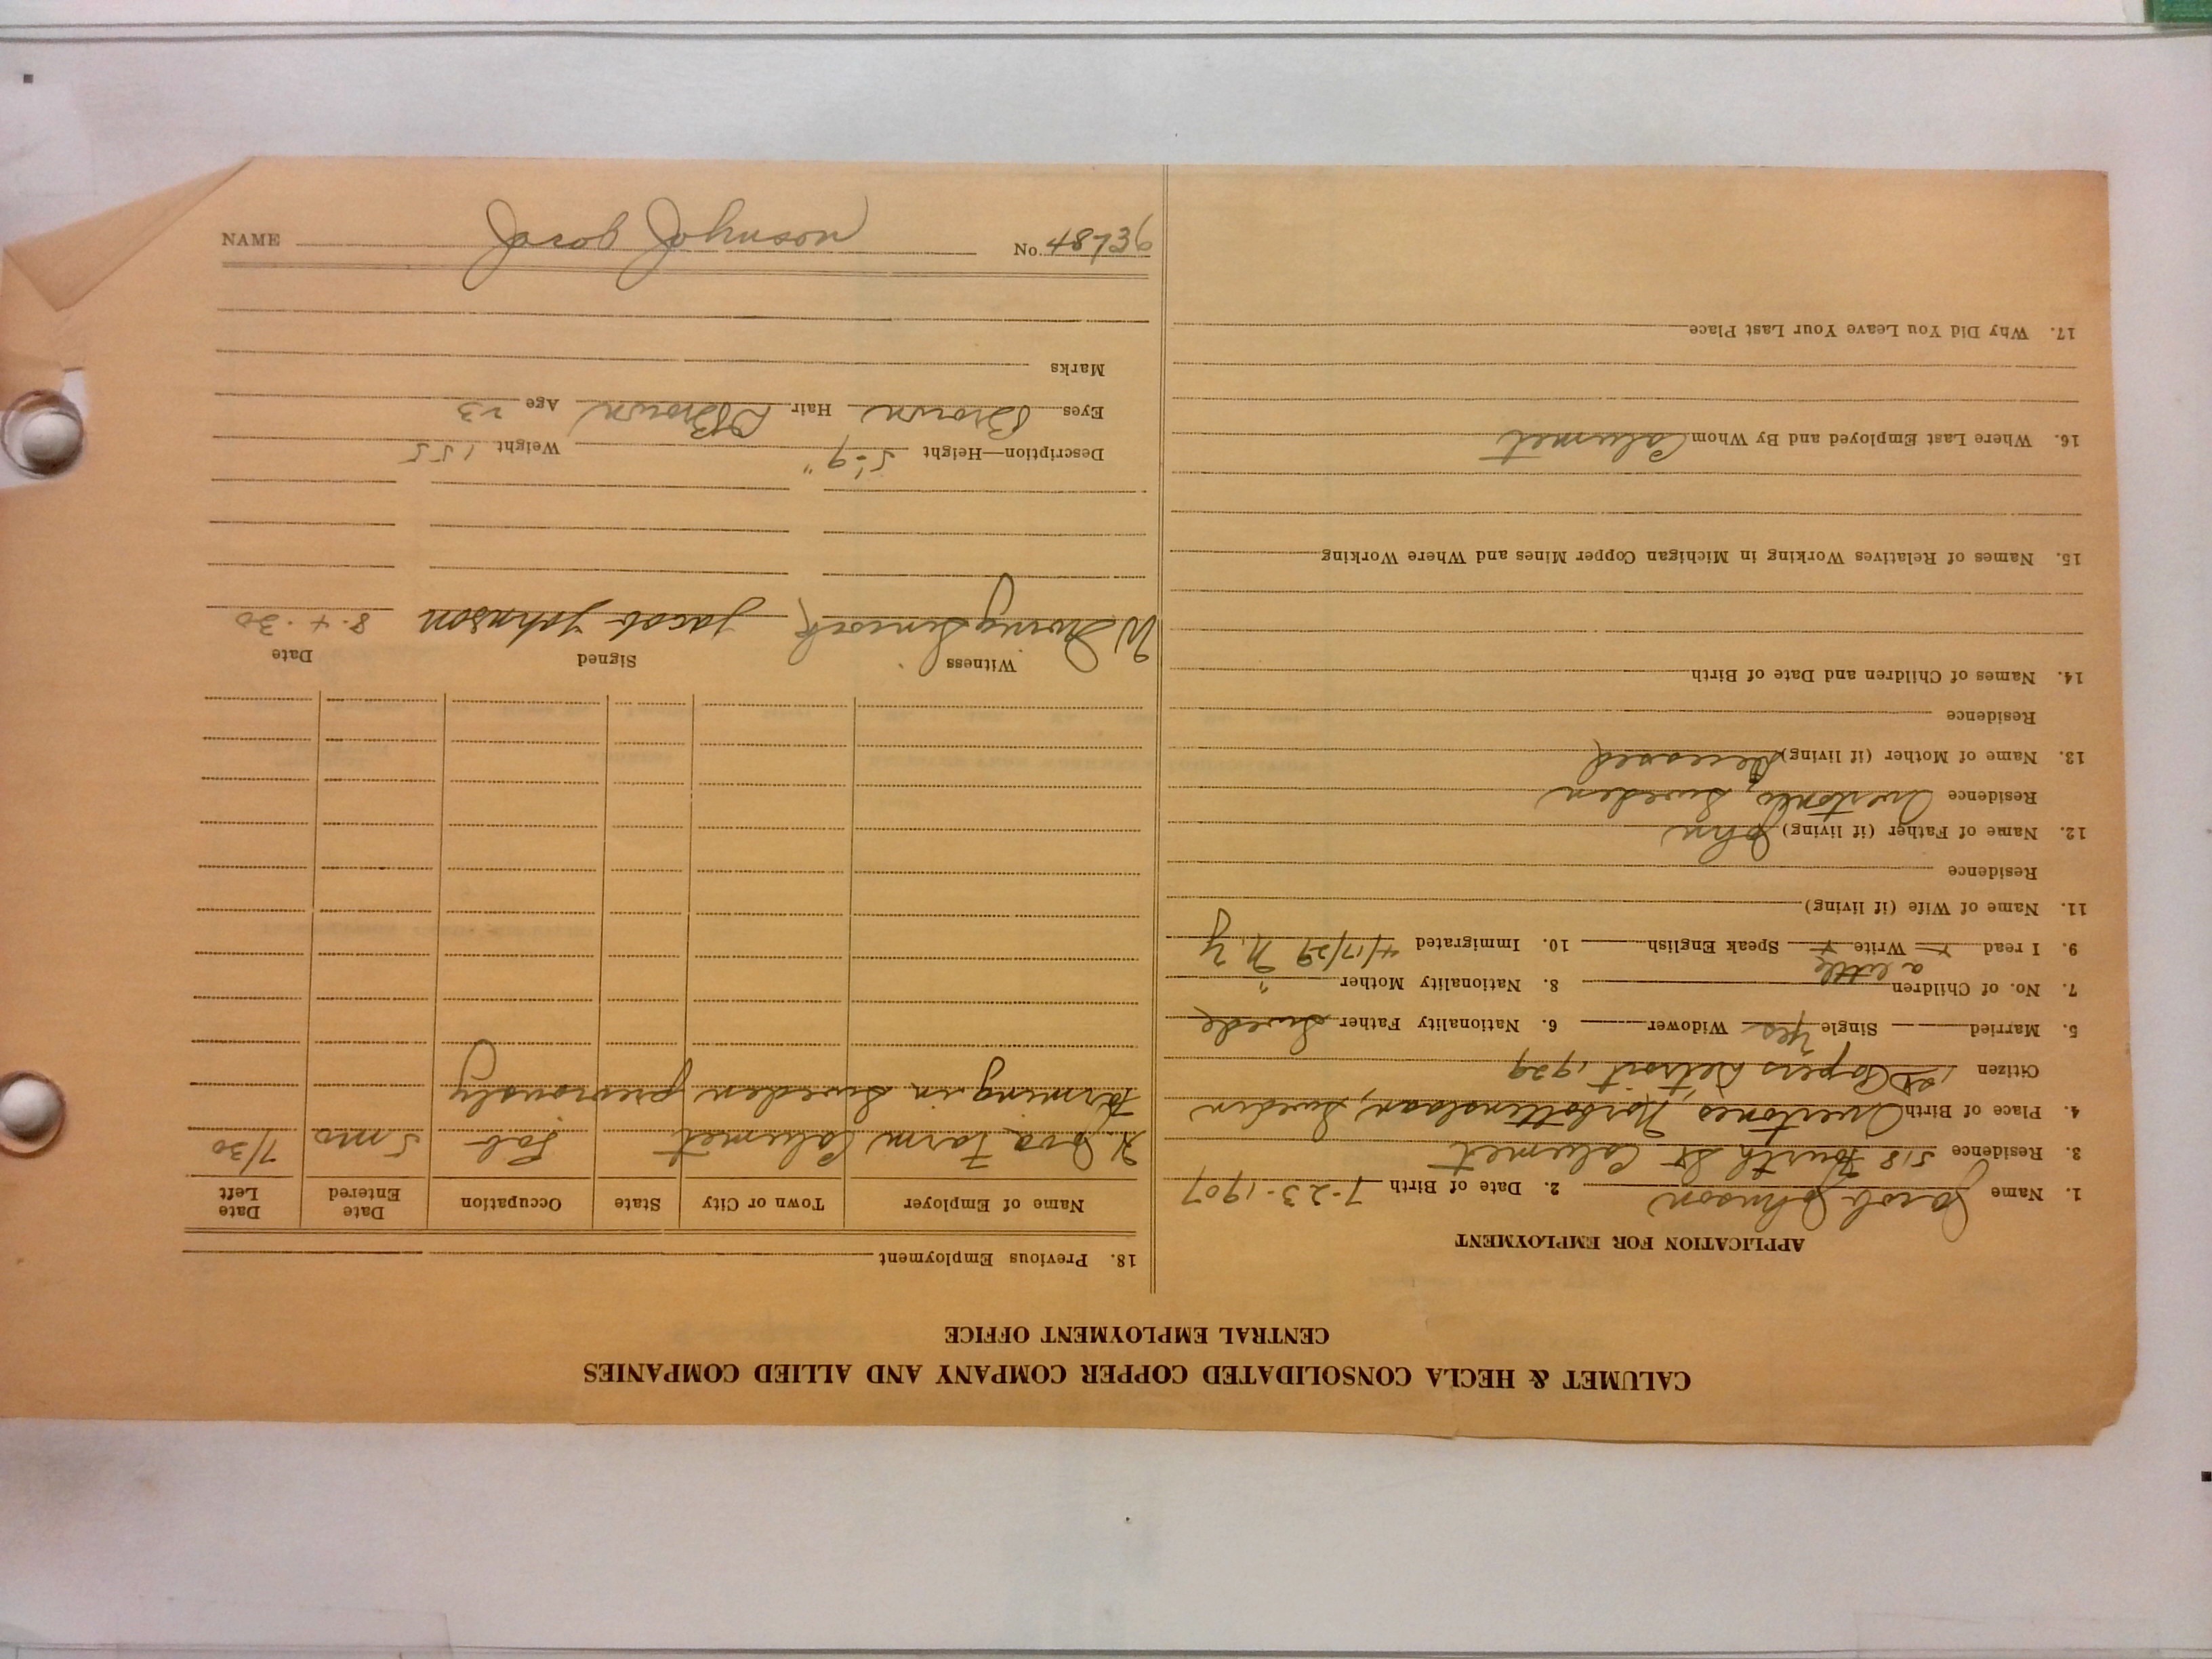 CALUMET & HECLA CONSOLIDATED COPPER COMPANY AND ALLIED COMPANIES
CENTRAL EMPLOYMENT OFFICE
APPLICATION FOR EMPLOYMENT
1. Name Jacob Johnson 2. Date of Birth 7-23-1907
3. Residence 518 Fourth St Calumet
4. Place of Birth Overtonea, Norbottenslaan, Sweden
Citizen 1st Papers Detroit 1929
5. Married Single Yes Widower 6. Nationality Father Swede
7. No. of Children 8. Nationality Mother "
a little
9. I read Write Speak English 10. Immigrated 4/17/29 N.Y
11. Name of Wife (if living)
Residence
12. Name of Father (if living) John
Residence Sweden
13. Name of Mother (if living) Deceased
Residence
14. Names of Children and Date of Birth
15. Names of Relatives Working in Michigan Copper Mines and Where Working
16. Where Last Employed and By Whom Calumet
17. Why Did You Leave Your Last Place
18. Previous Employment
Name of Employer Town or City State Occupation Date Entered Date Left
Farm Calumet Lab 5 mo 7/30
Farming in Sweden previously
Witness Signed Date
Jacob Johnson 8-4-30
Description—Height 5'-9" Weight 155
Eyes Brown Hair Brown Age 23
Marks
NAME Jacob Johnson No. 48736